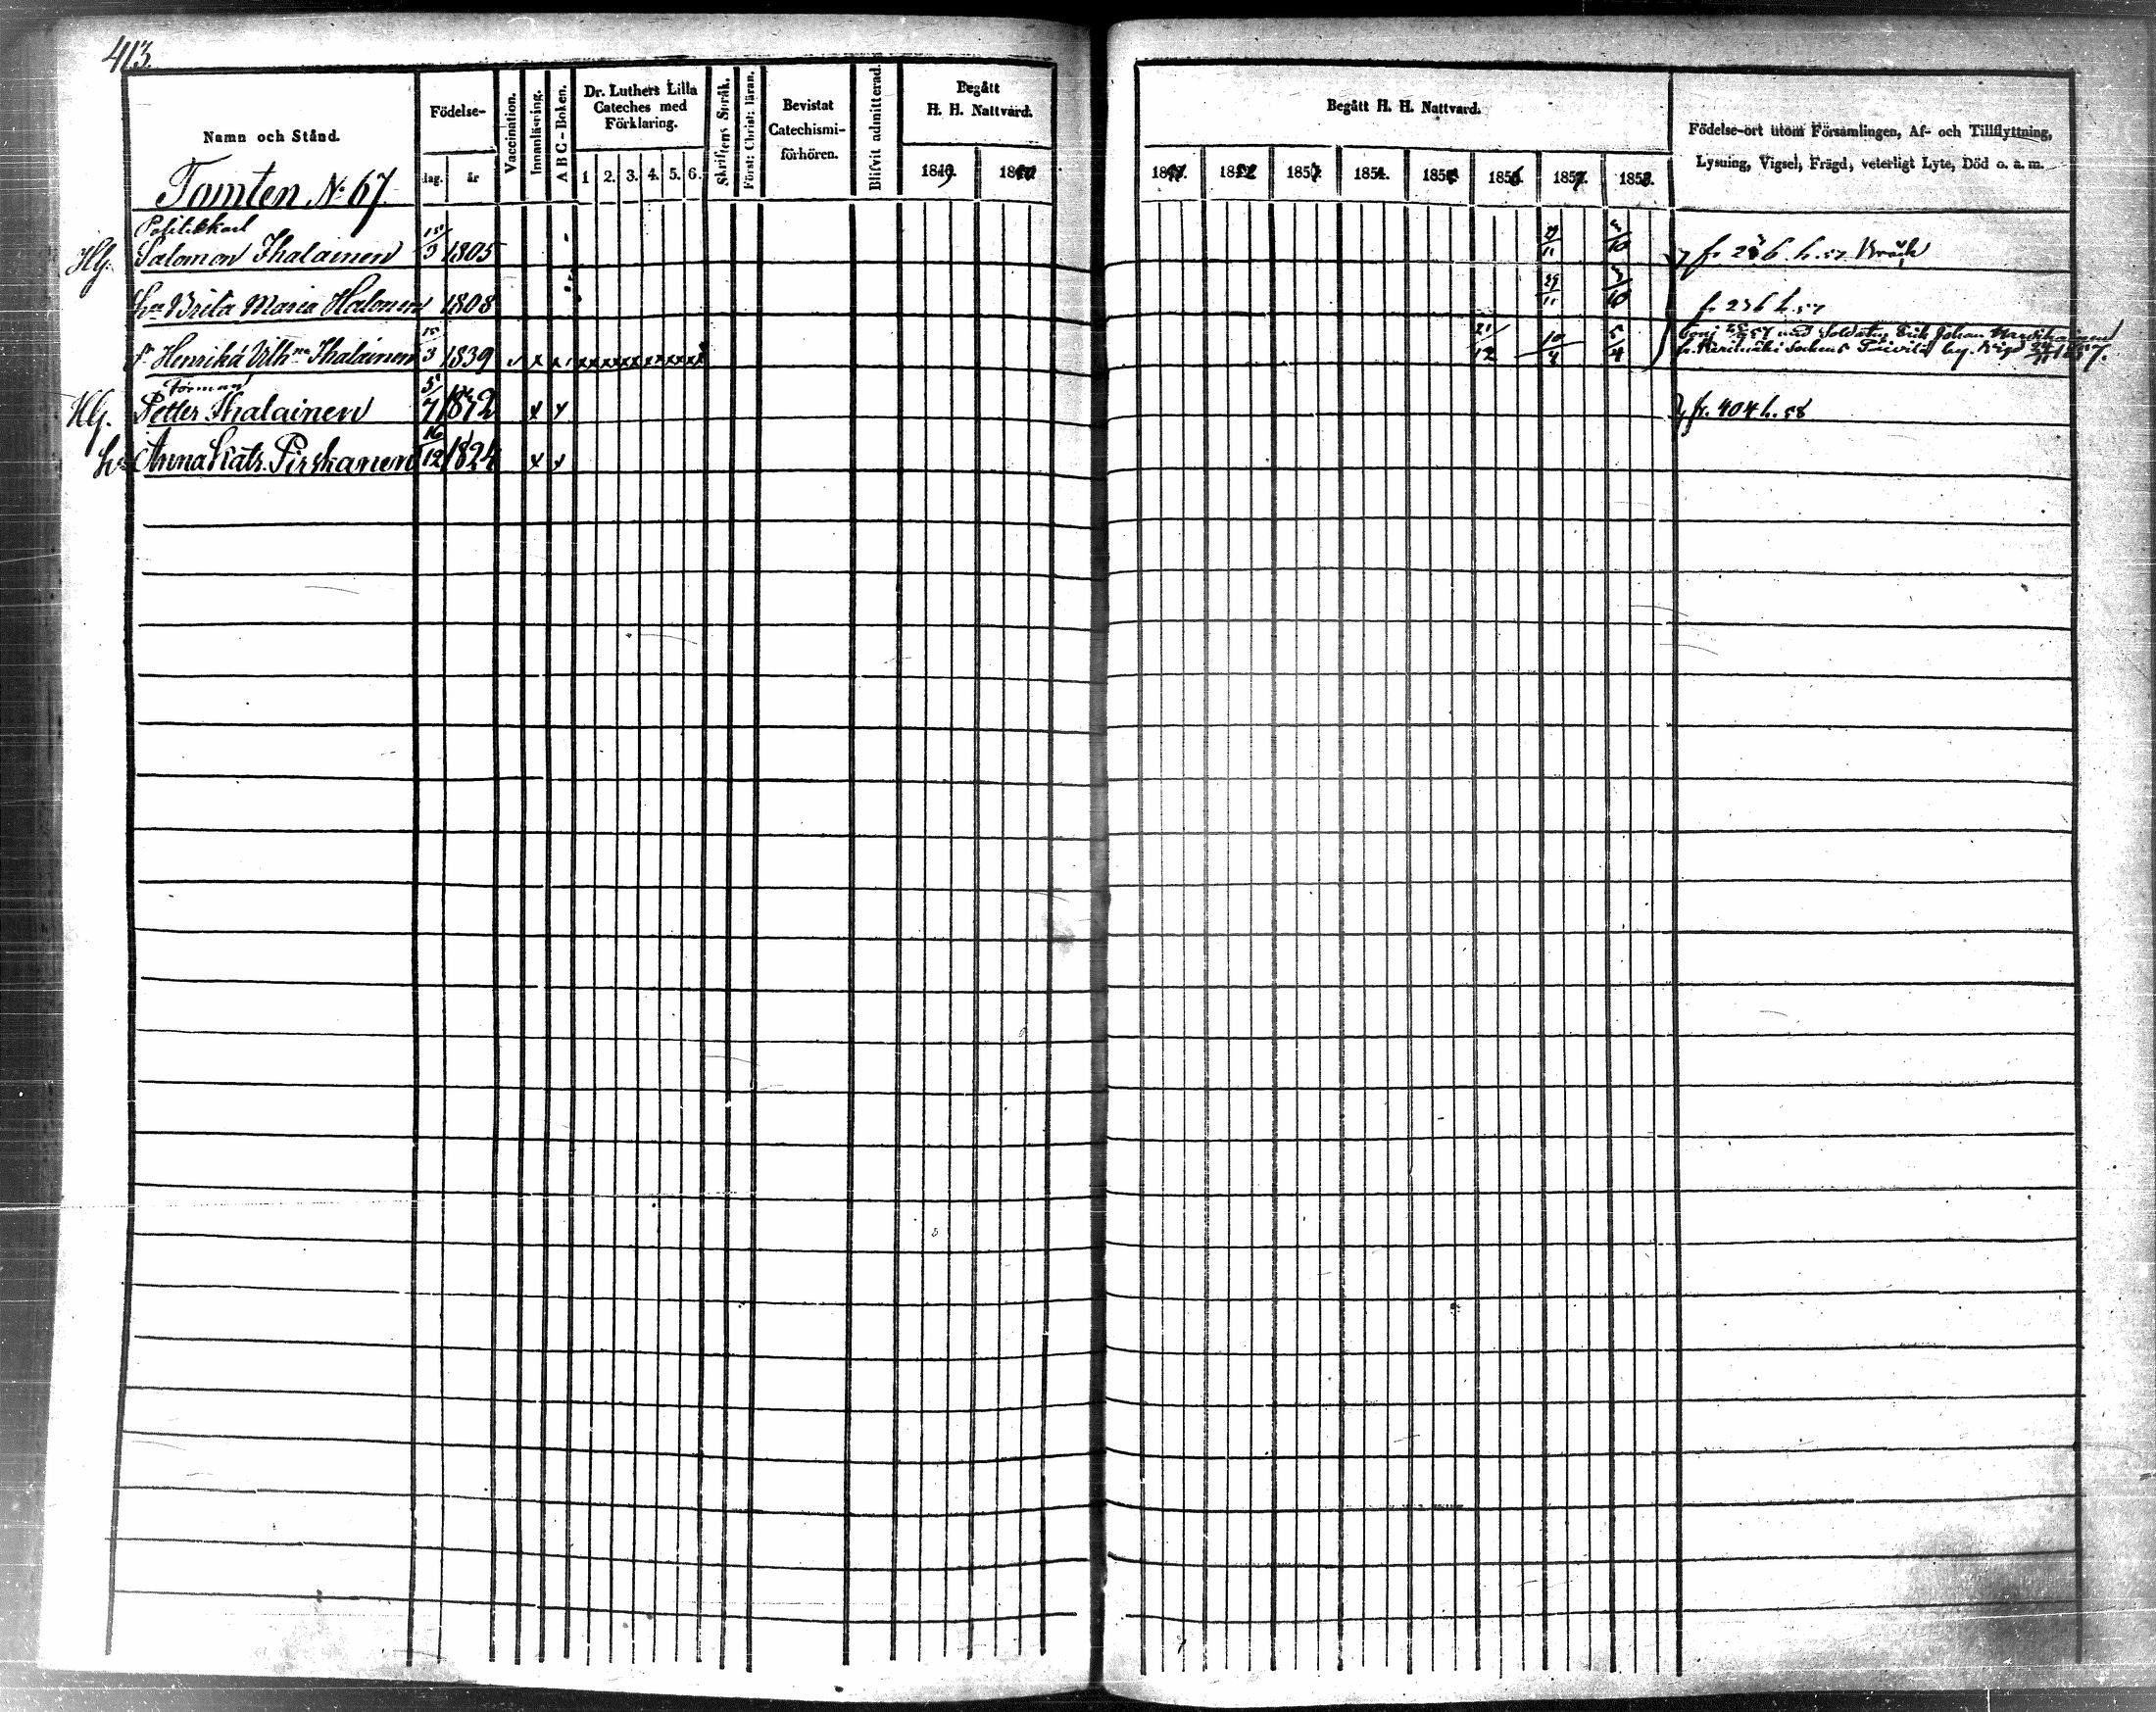 413.
Namn och Stånd.
Födelse-
dag.
år
Vaccination.
Innanläsning.
A B C - Boken.
Dr. Luthers Lilla
Cateches med
Förklaring.
1 2. 3. 4. 5. 6.
Skriftens Språk.
Först: Christ: läran.
Bevistat
Catechismi-
förhören.
Blifvit admitterad.
Begått
H. H. Nattvard.
1849
Begått H. H. Nattvard.
1853 1854. 1855 1856. 1857. 1858.
Födelse-ort utom Församlingen, Af- och Tillflyttning,
Lysning, Vigsel, Frägd, veterligt Lyte, Död o. a. m.
Tomten No 67.
Hg. Salomon Ihalainen 15/3 1805 29/11 fr. 236 h. 57
hu Brita Maria Halonen 1808 29/11 fr 236 h. 57
Henrika Ihalainen 15/3 1839 v x x x x x x x x x 21/12 10/4 5/4 med Soldaten Erik Johan
fr. Kerimäki Sockens
Förman
Hg. Petter Ihalainen 5/7 x x fr. 404 h. 58
hu Anna Katr. Pirskanen 16/12 1824 x x